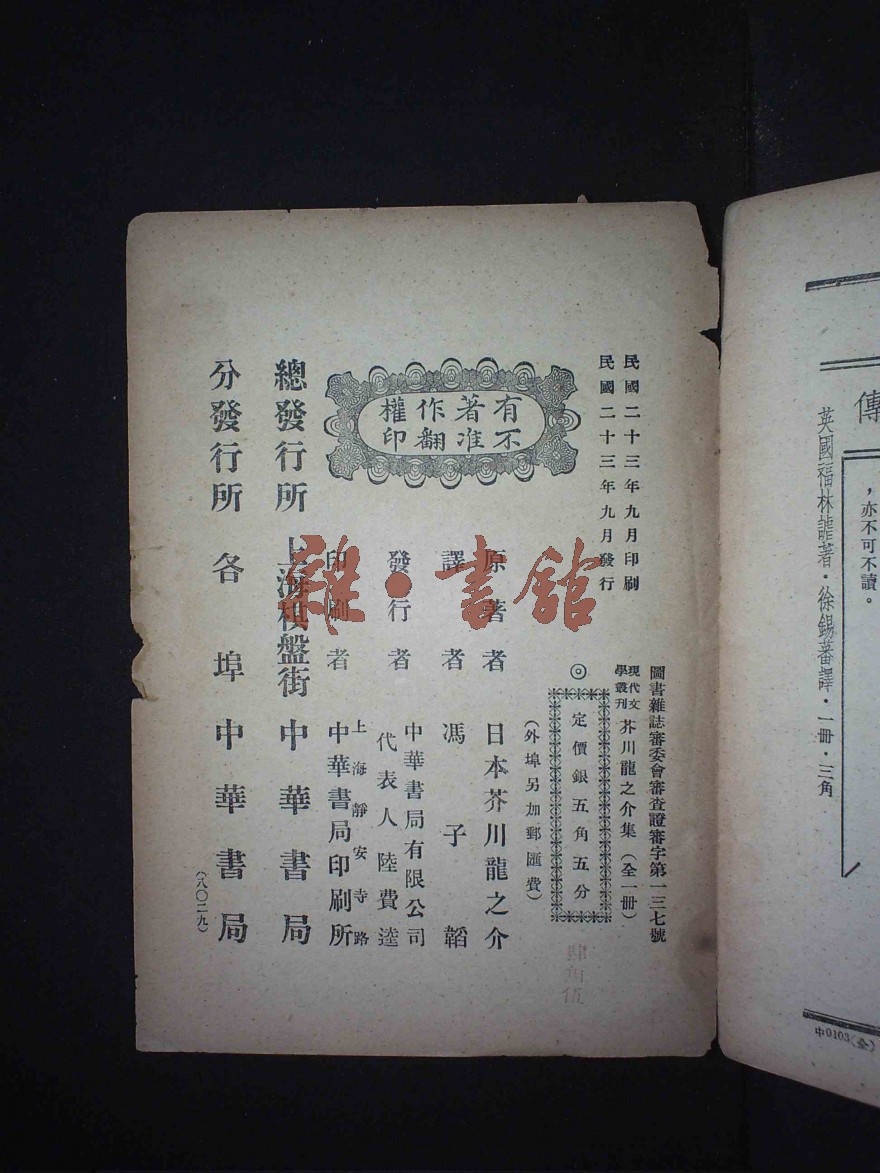 民國二十三年九月印刷
民國二十三年九月發行
圖書雜誌審委會審查證審字第一三七號
現代文學叢刊 芥川龍之介集(全一冊)
◎定價銀五角五分
(外埠另加郵匯費)
有不
著准
作翻
權印
原著者 日本芥川龍之介
譯者 馮子韜
發行者 中華書局有限公司
代表人陸費逵
印刷者 上海靜安寺路
中華書局印刷所
總發行所 上海棋盤街 中華書局
分發行所 各埠中華書局
(八〇二九)
雜·書館
傳
,亦不可不讀。
英國福林謔著·徐錫蕃譯·一冊·三角
中0103(全)